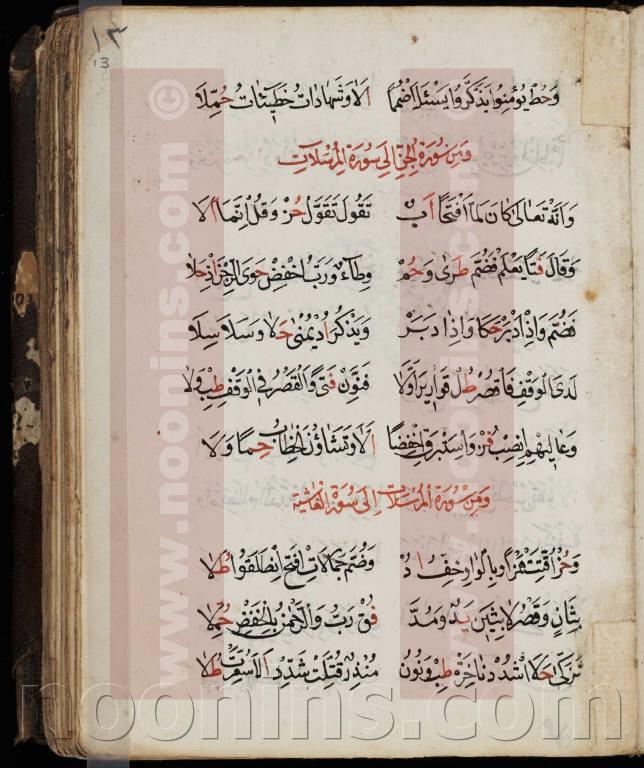 ١٣
13
وَحُط يُؤمِنُوا يَذَّكَّرُوا يَسْئَلُ اضْمُمًا الَا وَشَهَادَاتُ خَطِيئَاتُ حُمِّلَا
وَمِن سُورَةِ الجِنِّ إِلَى سُورَةِ المُرْسَلَاتِ
وَأَنَّهُ تَعَالَى كَانَ لَمَّا افْتَحًا أَبٌ تَقُولَ تَقَوَّلَ حُزْ وَقُلْ إِنَّمَا أَلَا
وَقَالَ فَتًى يَعْلَمْ فَضُمَّ طَرَى وَحُمْ وِطَاءً وَرَبُّ اخْفِضْ حَوَى الرِّجْزَ إِذْ حَلَا
فَضُمَّ وَإِذْ أَدْبَرْ حَكَا وَإِذَا دَبَرْ وَيَذْكُرُ أُدْ يُمْنَى حَلَا وَسَلَاسِلَا
لَدَى الوَقْفِ فَاقْصُرْ طُلْ قَوَارِيرَ أَوَّلَا فَنَوِّنْ فَتًى وَالقَصْرُ فِي الوَقْفِ طِبْ وِلَا
وَعَالِيَهُمُ انْصِبْ فُزْ وَإِسْتَبْرَقُ اخْفِضًا أَلَا وَتَشَاؤُنَ الخِطَابُ حِمًا وِلَا
وَمِن سُورَةِ المُرْسَلَاتِ إِلَى سُورَةِ الغَاشِيَةِ
وَحُزْ أُقِّتَتْ هَمْزًا وَبِالوَاوِ خِفُّ أُدْ وَضُمَّ جِمَالَاتِ افْتَحِ انْطَلَقُوا طُلَا
بِثَانٍ وَقَصْرُ لَابِثِينَ يَدٌ وَمُدَّ فُقْ رَبُّ وَالرَّحْمَنِ بِالخَفْضِ حُمِّلَا
تَزَكَّى حَلَا اشْدُدْ نَاخِرَهْ طِبْ وَنُونُ مُنْذِرُ قُتِّلَتْ شَدِّدْ أَلَا سُعِّرَتْ طُلَا
© www.noonins.com
www.noonins.com
noonins.com